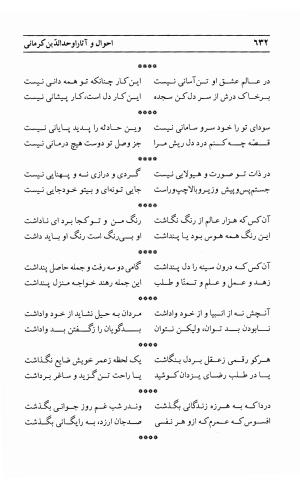 ۶۳۲ احوال و آثار اوحدالدّین کرمانی
****
در عالم عشق او تن‌آسانی نیست این کار چنانکه تو همه دانی نیست
برخاک درش از سر دل کن سجده این کار دل است، کار پیشانی نیست
****
سودای تو را خود سرو سامانی نیست وین حادثه را پدید پایانی نیست
قصّه چه کنم درد دل ریش مرا جز وصل تو دوست هیچ درمانی نیست
****
در ذات تو صورت و هیولایی نیست گردی و درازی نه و پهنایی نیست
جستم پس و پیش و زیر و بالا چپ و راست جایی تونه‌ای و بیتو خود جایی نیست
****
آن کس که هزار عالم از رنگ نگاشت رنگ من و تو کجا برد ای ناداشت
این رنگ همه هوس بود یا پنداشت او بی‌رنگ است رنگ او باید داشت
****
آن کس که درون سینه را دل پنداشت گامی دو سه رفت و جمله حاصل پنداشت
زهد و عمل و علم و تمنّا و طلب این جمله رهند خواجه منزل پنداشت
****
آنچش نه از انبیا و از خود واداشت مردان به حیل نشاید از خود واداشت
نابودن بد توان، ولیکن نتوان بدگویان را زگفتن بد واداشت
****
هرکو رقمی زعقل بر دل بنگاشت یک لحظه زعمر خویش ضایع نگذاشت
یا در طلب رضای یزدان کوشید یا راحت تن گزید و ساغر برداشت
****
دردا که به هرزه زندگانی بگذشت وندر شب غم روز جوانی بگذشت
افسوس که عمرم که ازو هر نفسی صدجان ارزد، به رایگانی بگذشت
****